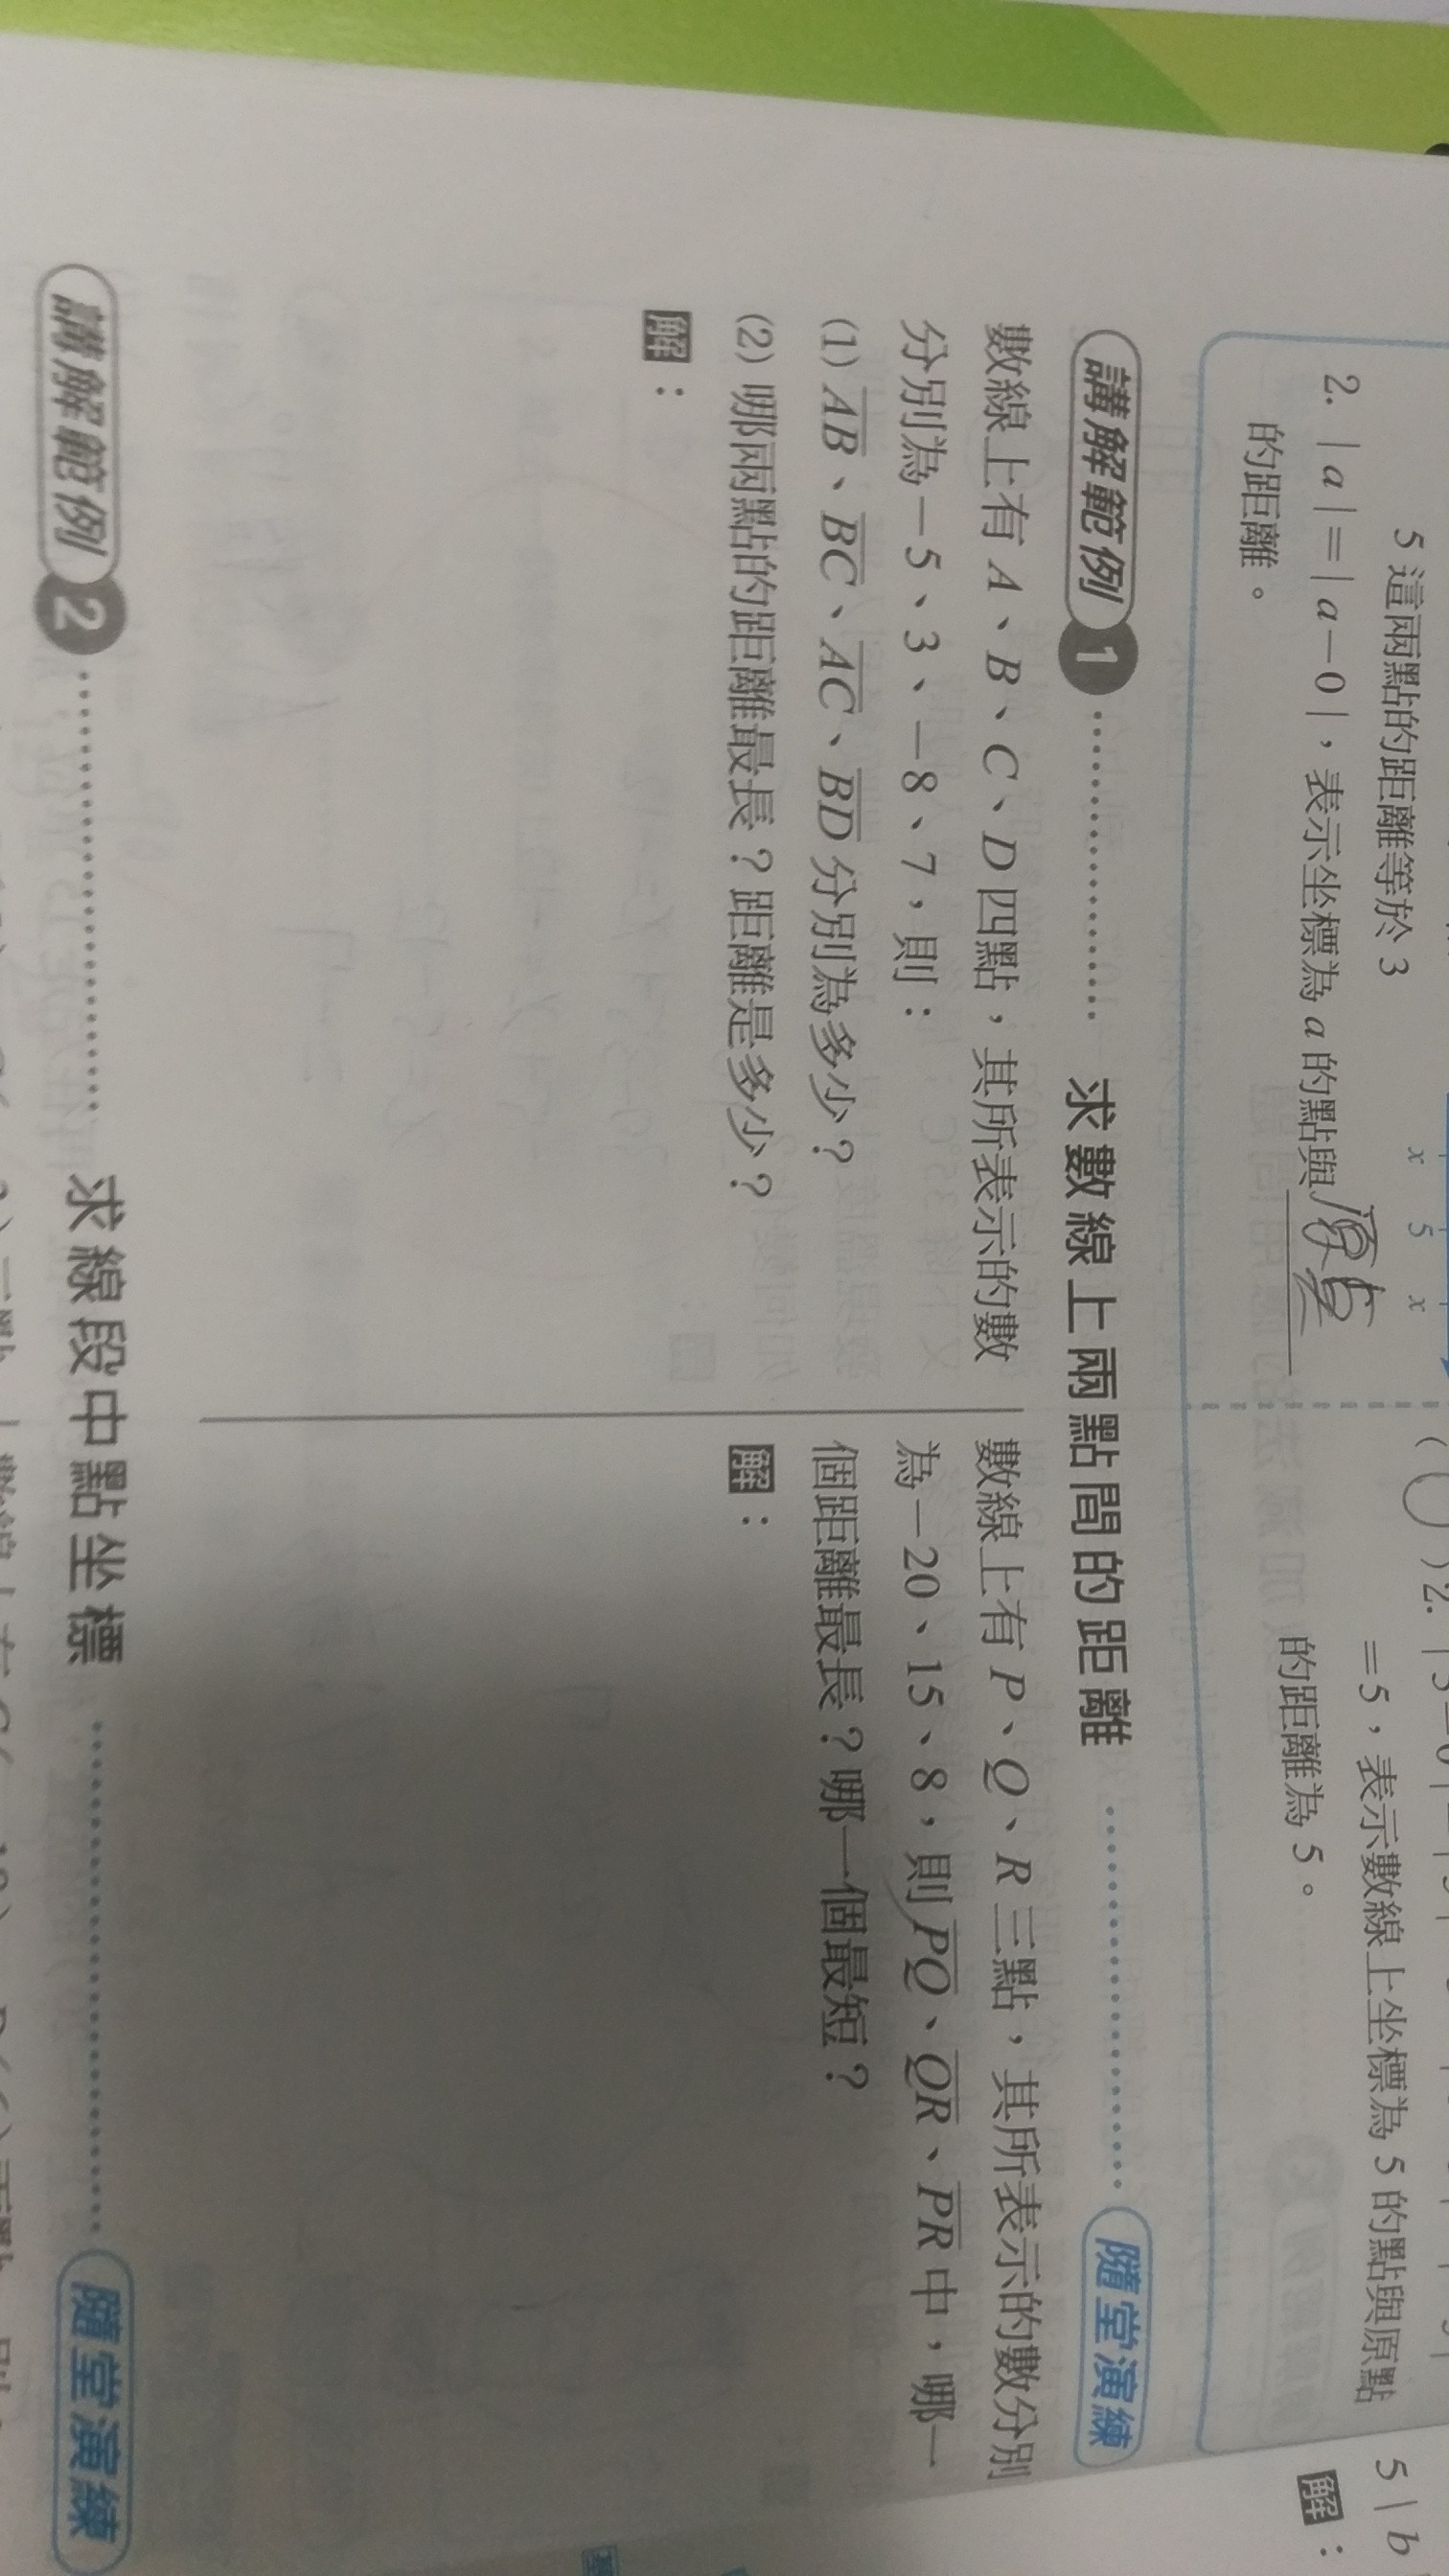 5 這兩點的距離等於 3
x 5 x
2. |a|=|a-0|,表示坐標為 a 的點與原點
的距離。
( ) 2.
=5,表示數線上坐標為 5 的點與原點
的距離為 5。
5|b
解:
講解範例 1 求數線上兩點間的距離 隨堂演練
數線上有 A、B、C、D 四點,其所表示的數
分別為-5、3、-8、7,則:
(1) AB、BC、AC、BD 分別為多少?
(2) 哪兩點的距離最長?距離是多少?
解:
數線上有 P、Q、R 三點,其所表示的數分別
為-20、15、8,則 PQ、QR、PR 中,哪一
個距離最長?哪一個最短?
解:
講解範例 2 求線段中點坐標 隨堂演練